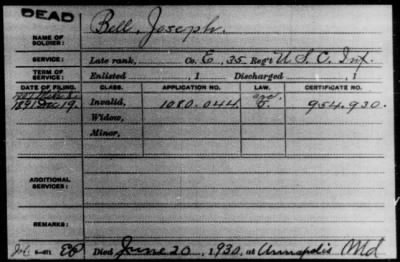 DEAD
NAME OF SOLDIER: Bell, Joseph.
SERVICE: Late rank, Co. E, 35 Reg't U.S.C. Inf.
TERM OF SERVICE: Enlisted , 1 Discharged , 1
DATE OF FILING. CLASS. APPLICATION NO. LAW. CERTIFICATE NO.
1891 Dec 19. Invalid, 1080.044 954.930.
Widow,
Minor,
ADDITIONAL SERVICES:
REMARKS:
Died June 20, 1930, at Annapolis Md